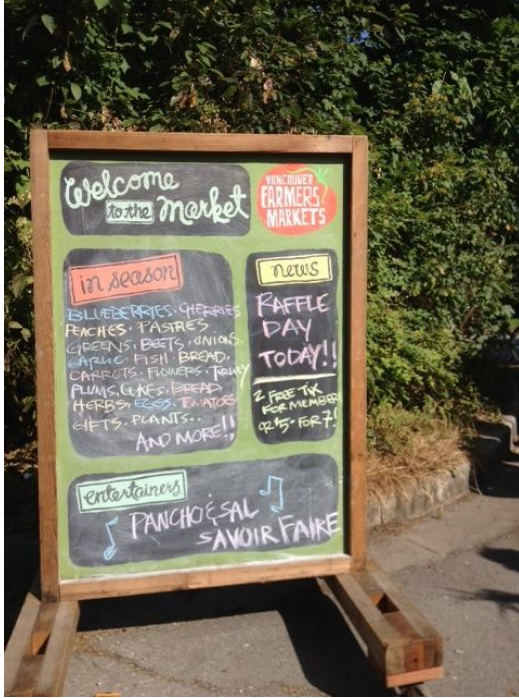 Welcome
to the Market
VANCOUVER
FARMERS
MARKETS
in season
BLUEBERRIES · CHERRIES
PEACHES · PASTRIES
GREENS · BEETS · ONIONS
GARLIC · FISH · BREAD
CARROTS · FLOWERS · TURKEY
PLUMS, CUKES · BREAD
HERBS, EGGS · TOMATOES
GIFTS · PLANTS..
AND MORE!!
news
RAFFLE
DAY
TODAY!!
2 FREE TIX
FOR MEMBER
OR $5- FOR 7!
entertainers
PANCHO & SAL
SAVOIR FAIRE